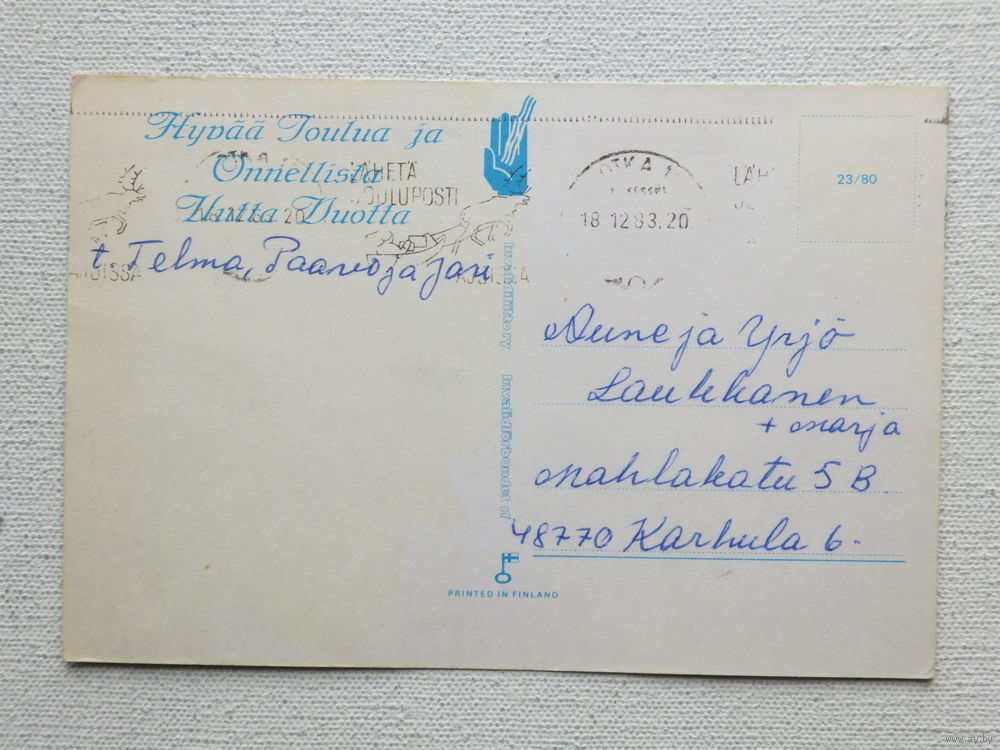 Hyvää Joulua ja
Onnellista
Uutta Vuotta
t. Telma, Paavo ja Jari
LÄHETÄ
JOULUPOSTI
AJOISSA
OTKA 1
18 12 83.20
LÄH
23/80
Invalidiliitto ry
Invalidförbundet rf
Aune ja Yrjö
Laukkanen
+ Marja
Mahlakatu 5 B
48770 Karhula 6.
PRINTED IN FINLAND
www.ay.by